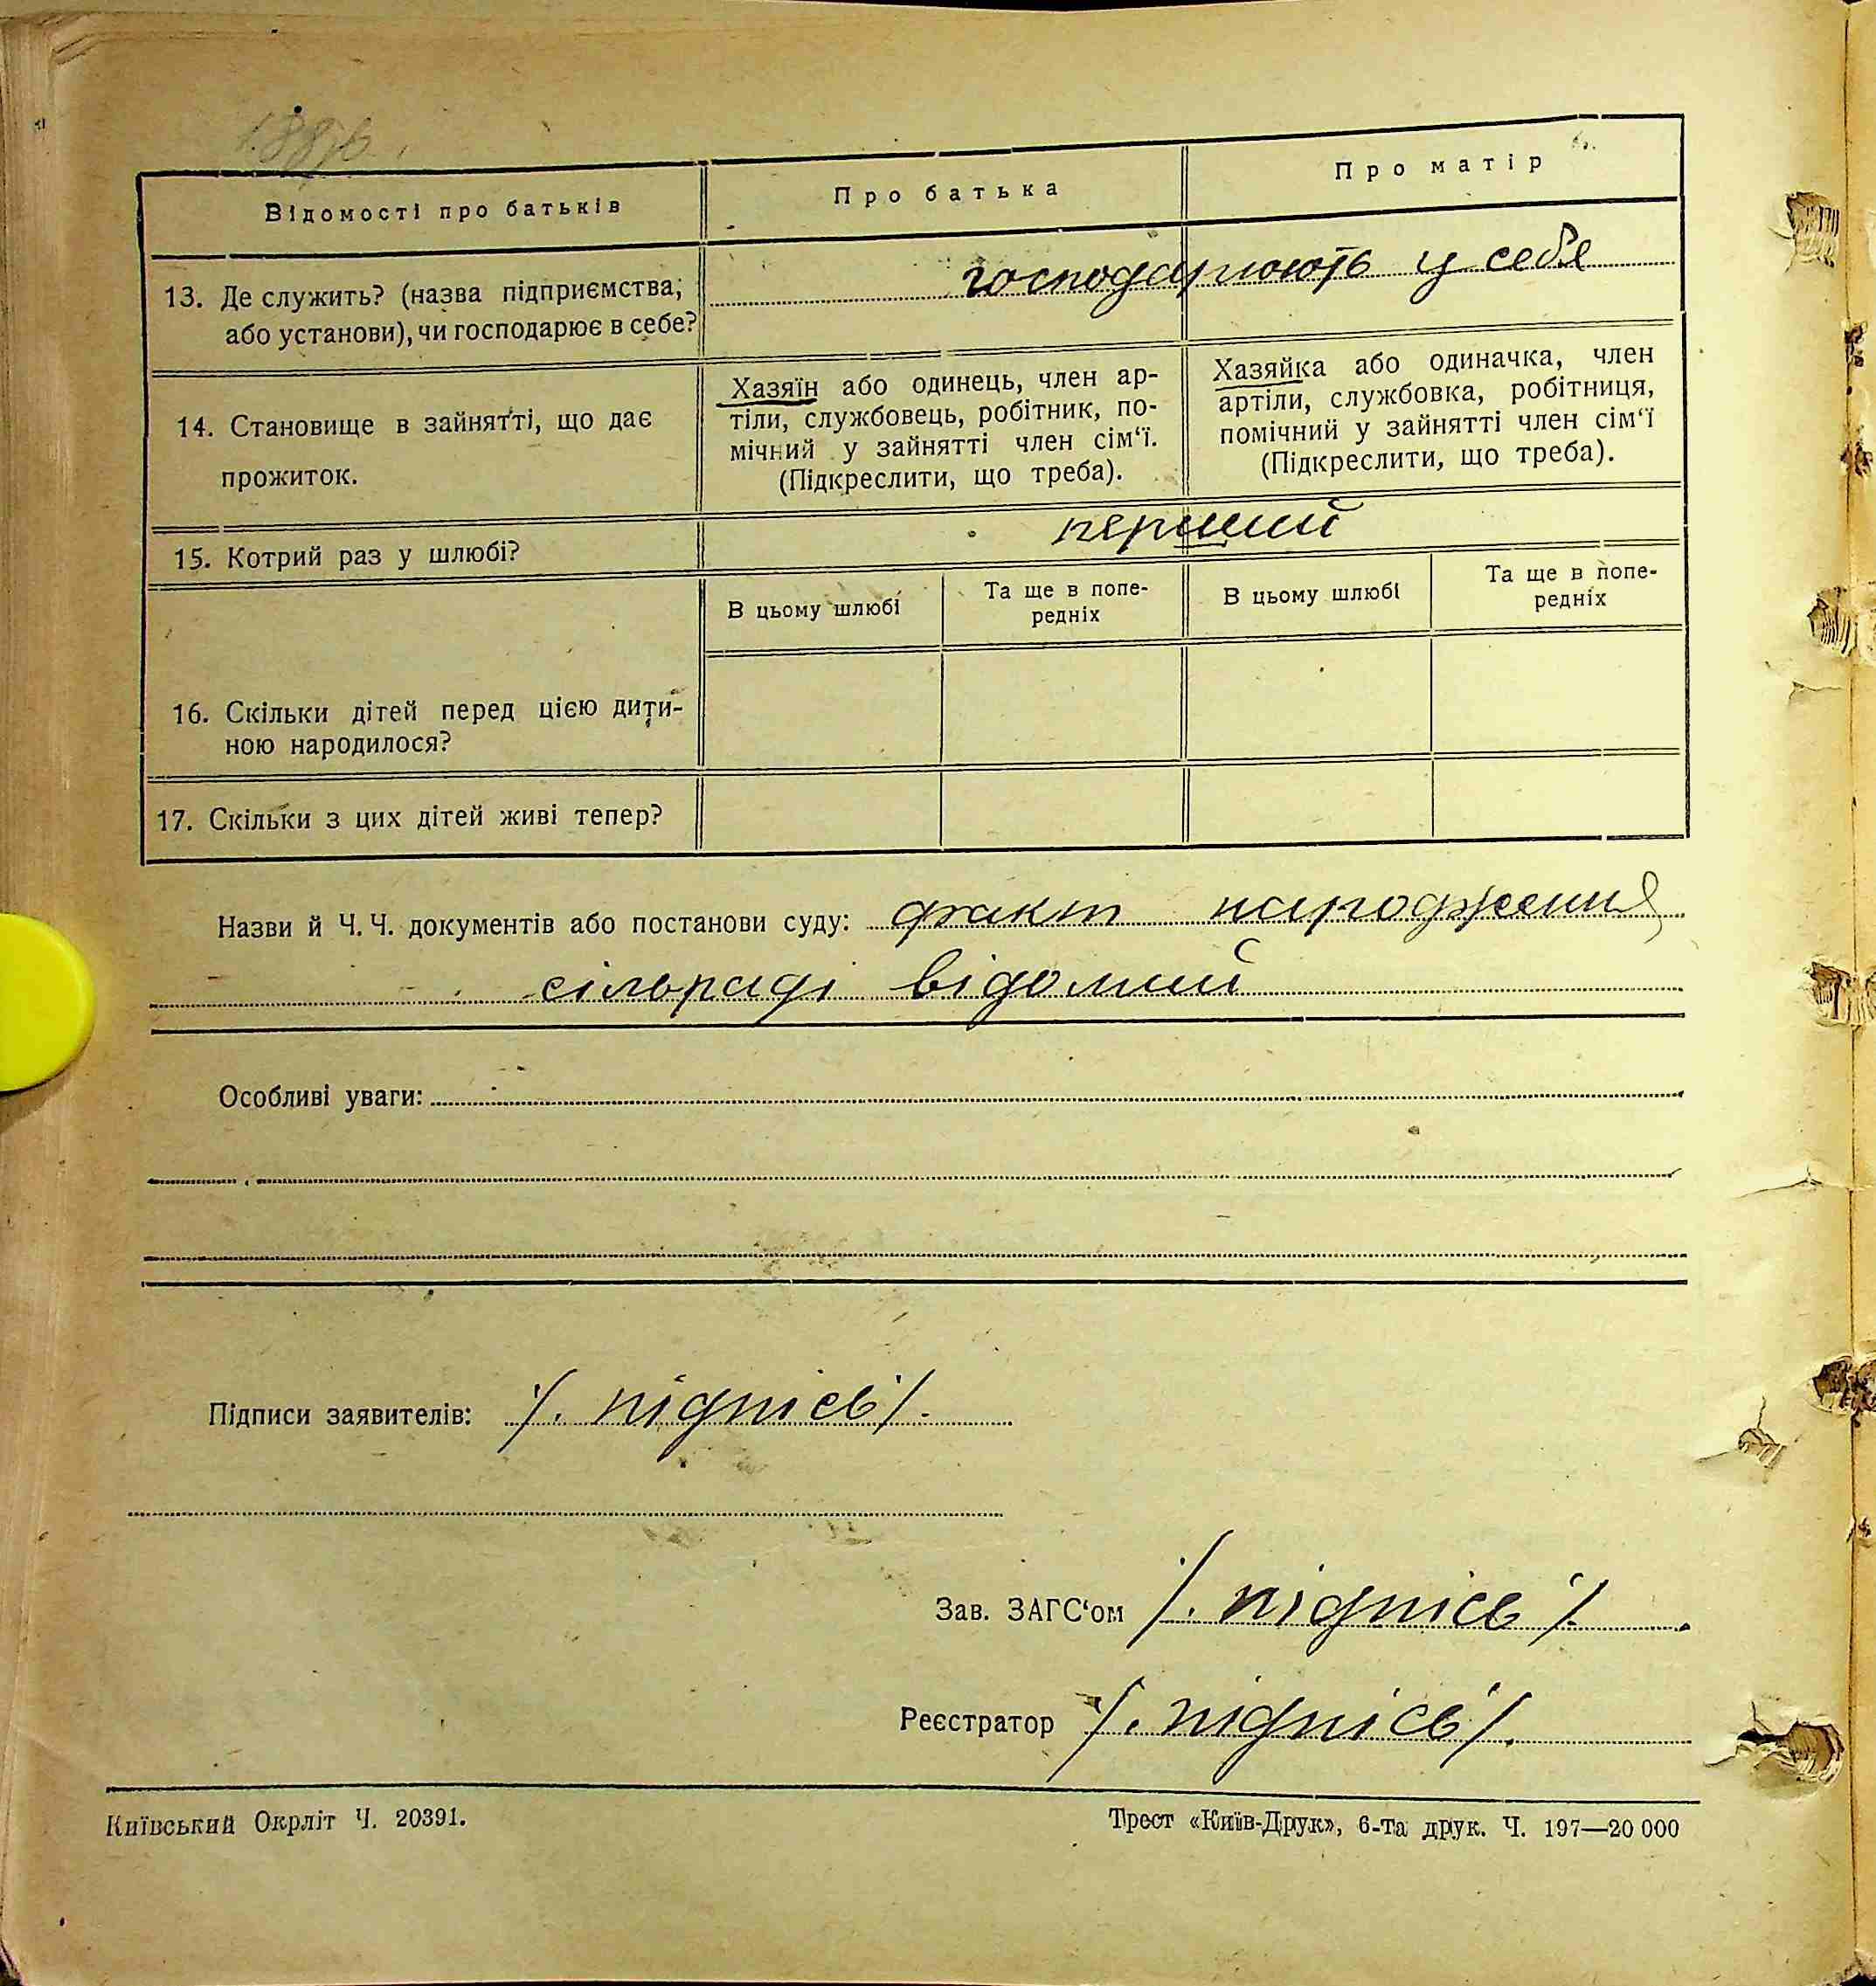 Відомості про батьків
Про батька
Про матір
13. Де служить? (назва підприємства, або установи), чи господарює в себе?
господарюють у себя
14. Становище в зайнятті, що дає прожиток.
Хазяїн або одинець, член ар-
тіли, службовець, робітник, по-
мічний у зайнятті член сім‘ї.
(Підкреслити, що треба).
Хазяйка або одиначка, член
артіли, службовка, робітниця,
помічний у зайнятті член сім‘ї
(Підкреслити, що треба).
15. Котрий раз у шлюбі?
перший
В цьому шлюбі
Та ще в попе-
редніх
В цьому шлюбі
Та ще в попе-
редніх
16. Скільки дітей перед цією дити-
ною народилося?
17. Скільки з цих дітей живі тепер?
Назви й Ч. Ч. документів або постанови суду: факт народження
сільраді відомий
Особливі уваги:
Підписи заявителів: /. підпісь /.
Зав. ЗАГС‘ом /. підпісь /.
Реєстратор /. підпісь /.
Київський Окрліт Ч. 20391.
Трест «Київ-Друк», 6-та друк. Ч. 197—20 000